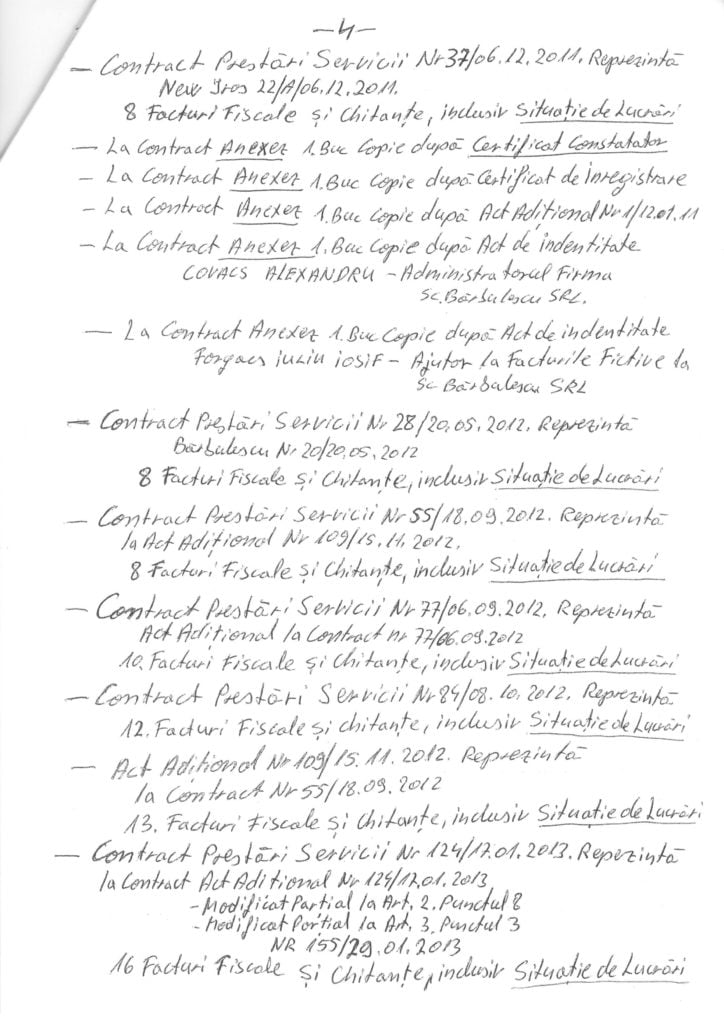 -4-
- Contract Prestări Servicii Nr 37/06.12.2011. Reprezintă
New Iros 22/A/06.12.2011.
8 Facturi Fiscale și Chitanțe, inclusiv Situație de Lucrări
- La Contract Anexez 1.Buc Copie după Certificat Constatator
- La Contract Anexez 1.Buc Copie după Certificat de înregistrare
- La Contract Anexez 1.Buc Copie după Act Adițional Nr 1/12.01.11
- La Contract Anexez 1.Buc Copie după Act de indentitate
COVACS ALEXANDRU - Administratorul Firma
Sc. Bărbulescu SRL.
- La Contract Anexez 1.Buc Copie după Act de indentitate
Forgacs iuliu iosif - Ajutor la Facturile Fictive la
Sc Bărbulescu SRL
- Contract Prestări Servicii Nr 28/20.05.2012. Reprezintă
Bărbulescu Nr 20/20.05.2012
8 Facturi Fiscale și Chitanțe, inclusiv Situație de Lucrări
- Contract Prestări Servicii Nr 55/18.09.2012. Reprezintă
la Act Adițional Nr 109/15.11.2012.
8 Facturi Fiscale și Chitanțe, inclusiv Situație de Lucrări
- Contract Prestări Servicii Nr 77/06.09.2012. Reprezintă
Act Adițional la Contract nr 77/06.09.2012
10. Facturi Fiscale și Chitanțe, inclusiv Situație de Lucrări
- Contract Prestări Servicii Nr 84/08.10.2012. Reprezintă
12. Facturi Fiscale și chitanțe, inclusiv Situație de Lucrări
- Act Adițional Nr 109/15.11.2012. Reprezintă
la Contract Nr 55/18.09.2012
13. Facturi Fiscale și Chitanțe, inclusiv Situatie de Lucrări
- Contract Prestări Servicii Nr 124/17.01.2013. Reperzintă
la Contract Act Aditional Nr 124/17.01.2013
- Modificat Partial la Art. 2. Punctul 8
- Modificat Partial la Art. 3. Punctul 3
NR 155/29.01.2013
16 Facturi Fiscale și Chitanțe, inclusiv Situație de Lucrări